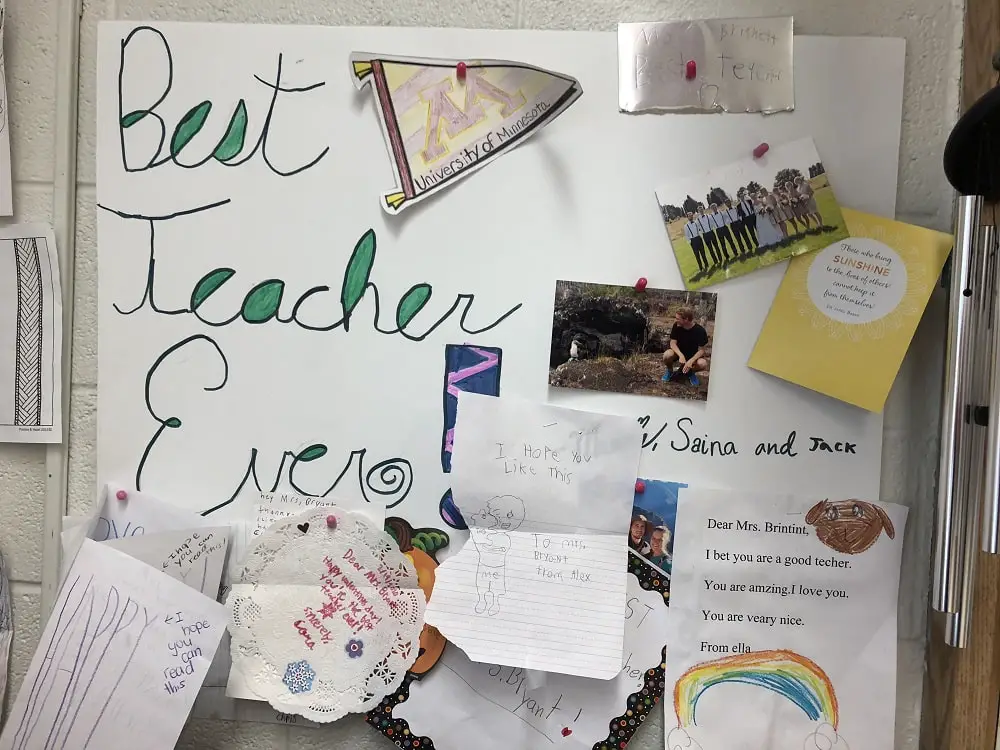 Best
Teacher
Ever
M
University of Minnesota
Those who bring
SUNSHINE
to the lives of others
cannot keep it
from themselves
Saina and JACK
I HOPE You
LiKe THis
To mrs.
Bryant
from Alex
me
Dear Mrs. Brintint,
I bet you are a good techer.
You are amzing.I love you.
You are veary nice.
From ella
hey Mrs, Bryant
← I hope
you can
read this!
HAPPY
← I
hope
you can
read
this
Dear Mrs.
Happy valentine day!
You're the best
teacher ever!
sincerely,
Cora
Bryant !
chris